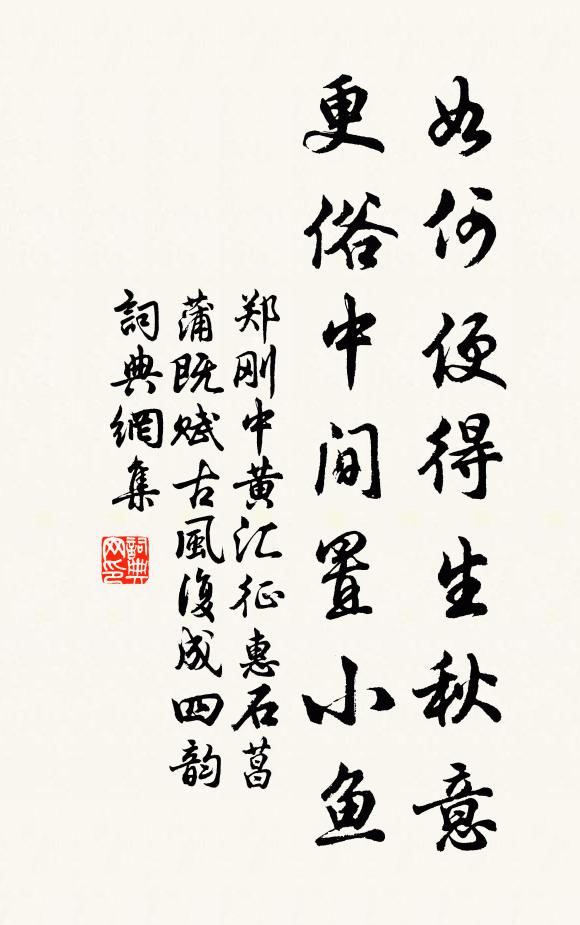 如何便得生秋意
更俗中间置小鱼
郑刚中黄汇征惠石菖
蒲既赋古風復成四韵
詞典網集
詞典网印